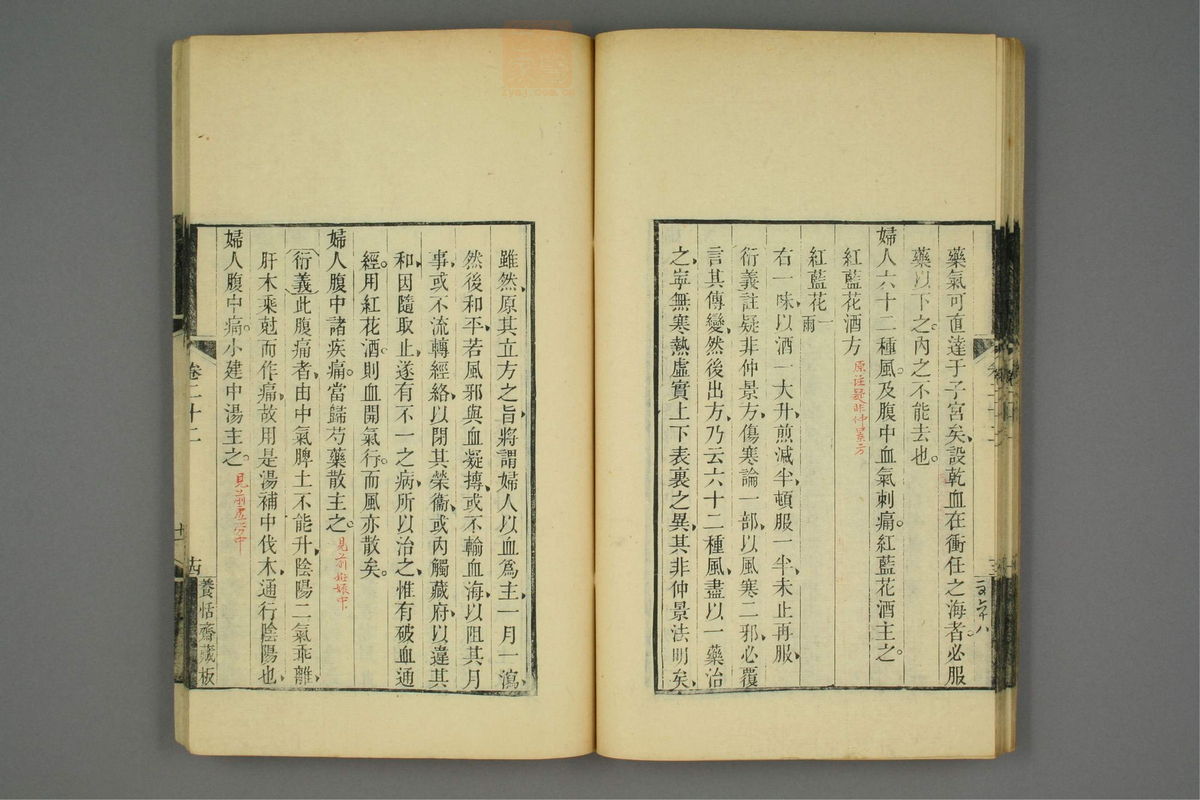 藥氣可直達于子宮矣設乾血在衝任之海者必服
藥以下之內之不能去也
婦人六十二種風及腹中血氣刺痛紅藍花酒主之
紅藍花酒方
原注疑非仲景方
紅藍花一兩
右一味以酒一大升煎減半頓服一半未止再服
衍義註疑非仲景方傷寒論一部以風寒二邪必覆
言其傳變然後出方乃云六十二種風盡以一藥治
之寧無寒熱虛實上下表裏之異其非仲景法明矣
雖然原其立方之旨將謂婦人以血爲主一月一瀉
然後和平若風邪與血凝摶或不輸血海以阻其月
事或不流轉經絡以閉其榮衞或內觸藏府以違其
和因隨取止遂有不一之病所以治之惟有破血通
經用紅花酒則血開氣行而風亦散矣
婦人腹中諸疾痛當歸芍藥散主之
見前妊娠中
衍義此腹痛者由中氣脾土不能升陰陽二氣乖離
肝木乘尅而作痛故用是湯補中伐木通行陰陽也
婦人腹中痛小建中湯主之
見前虛勞中
卷二十二
十四
養恬齋藏板